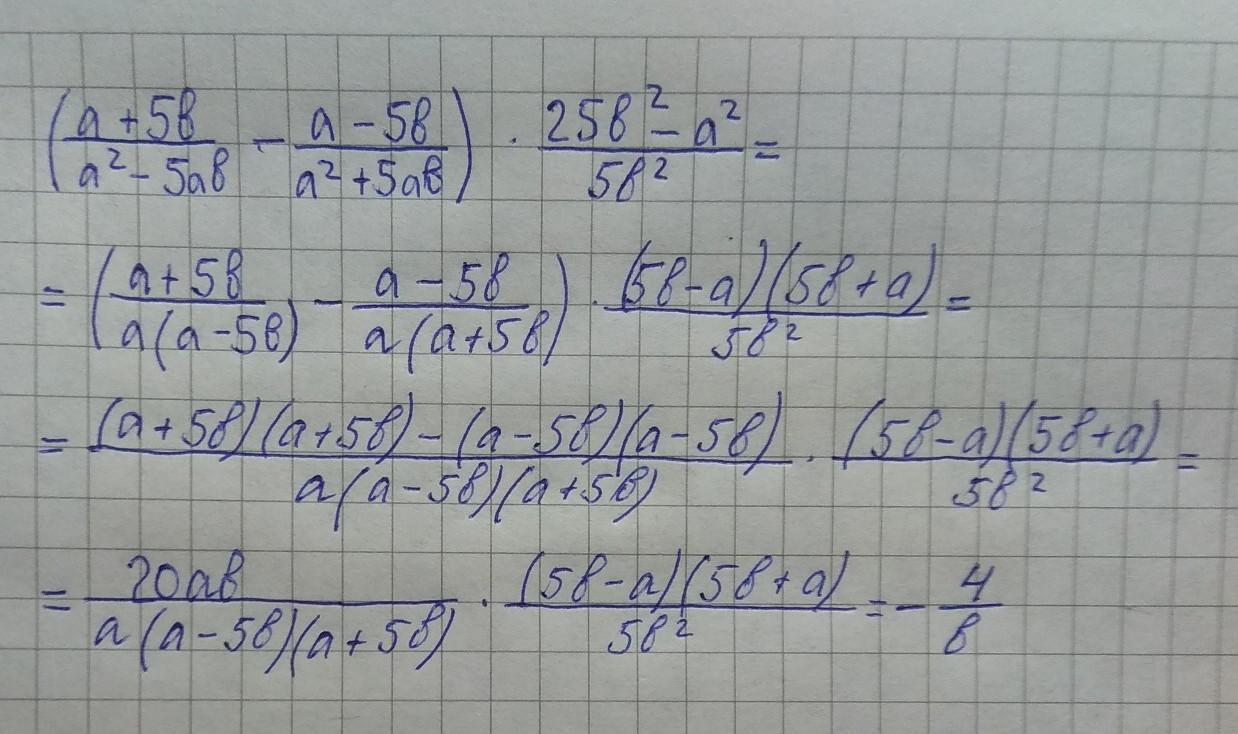 (a+5в/a²-5aв - a-5в/a²+5aв) · 25в²-a²/5в² =
= (a+5в/a(a-5в) - a-5в/a(a+5в)) · (5в-a)(5в+a)/5в² =
= (a+5в)(a+5в)-(a-5в)(a-5в)/a(a-5в)(a+5в) · (5в-a)(5в+a)/5в² =
= 20aв/a(a-5в)(a+5в) · (5в-a)(5в+a)/5в² = - 4/в